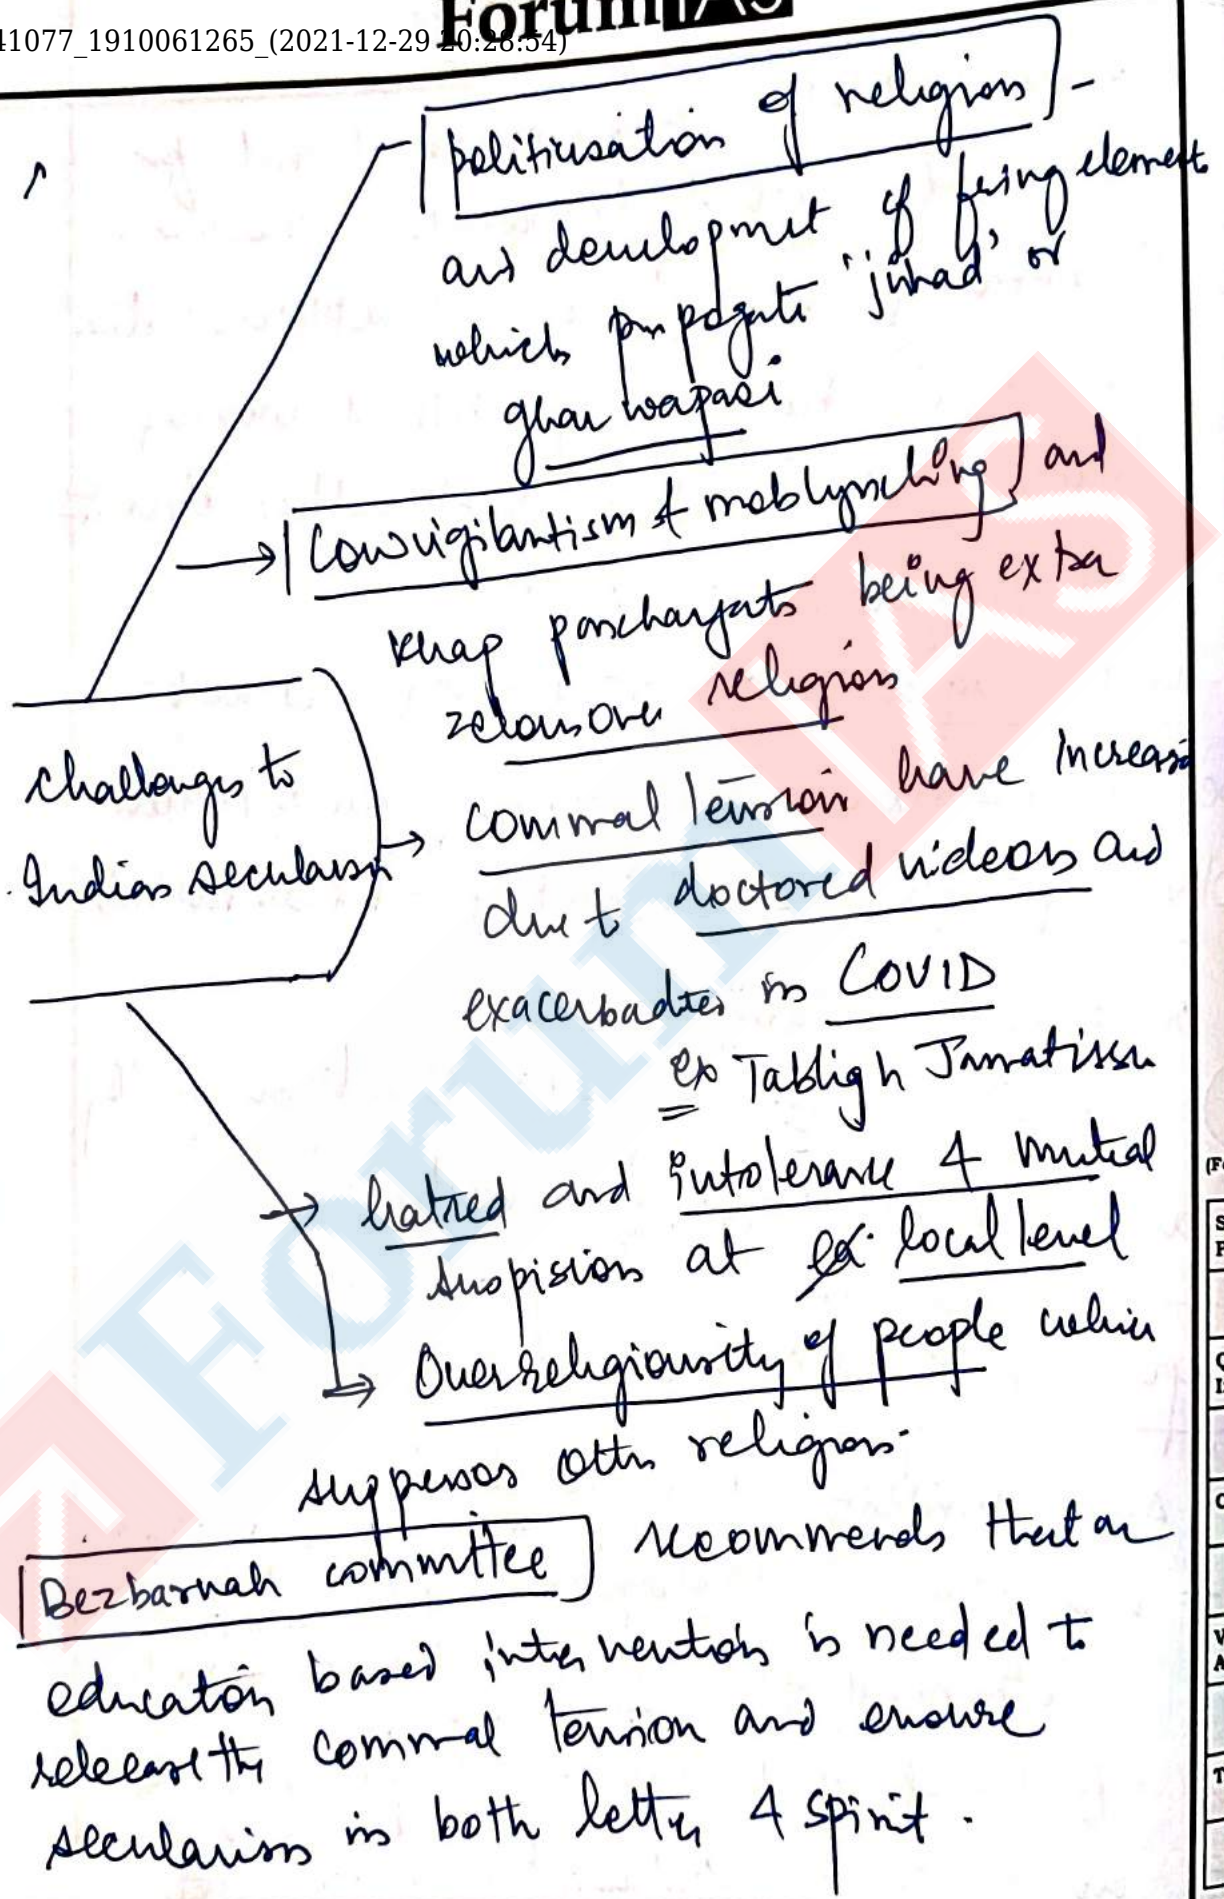 Forum IAS
41077_1910061265_(2021-12-29 20:28:54)
politicisation of religion -
and development of fring element
which propagate 'jihad' or
ghar wapasi
Cow vigilantism & moblynching and
Khap panchayats being extra
zelous over religion
Challenges to
Indian secularism
commal tension have increasi
due to doctored videos and
exacerbadtes in COVID
ex Tabligh Jamat issu
hatred and intolerance & mutal
suspision at local level
Overreligiousity of people which
suppress othr religion.
Bezbaruah committee recommends that an
education based intervention is needed to
release the commal tension and ensure
secularism in both letter & spirit.